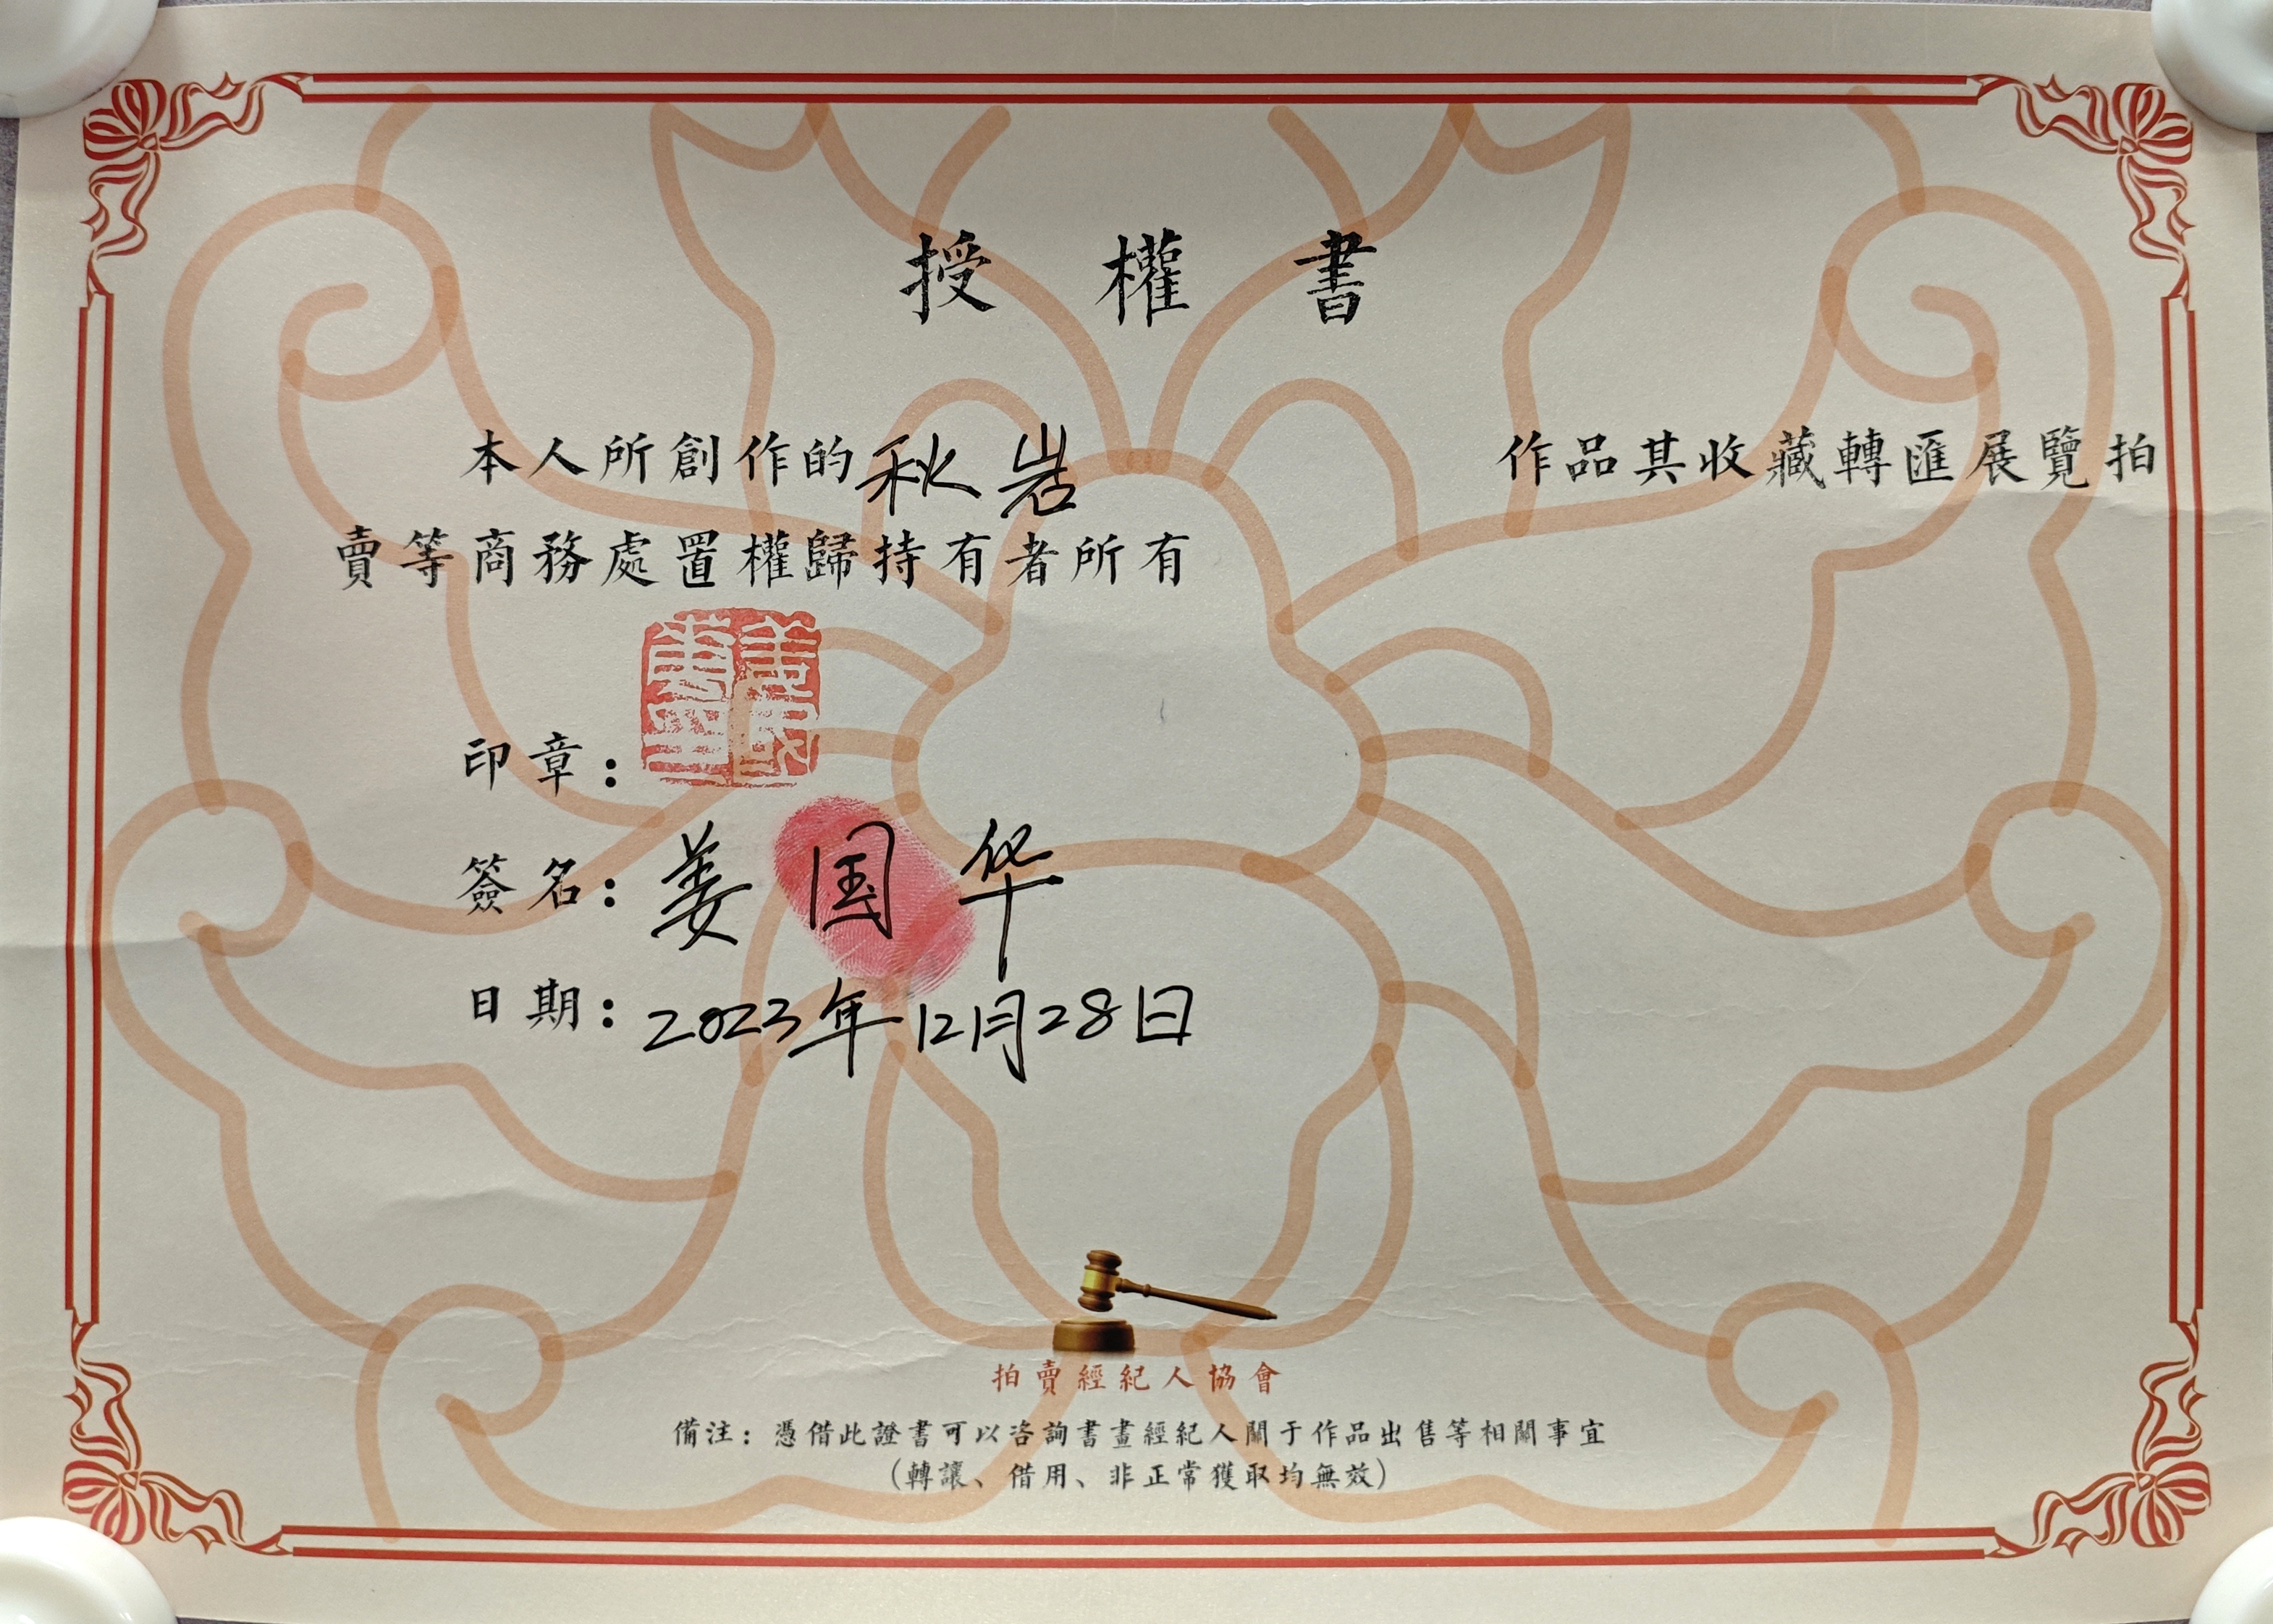 授權書
本人所創作的秋岩 作品其收藏轉匯展覽拍
賣等商務處置權歸持有者所有
印章：
簽名：姜国华
日期：2023年12月28日
拍賣經紀人協會
備注：憑借此證書可以咨詢書畫經紀人關于作品出售等相關事宜
（轉讓、借用、非正常獲取均無效）